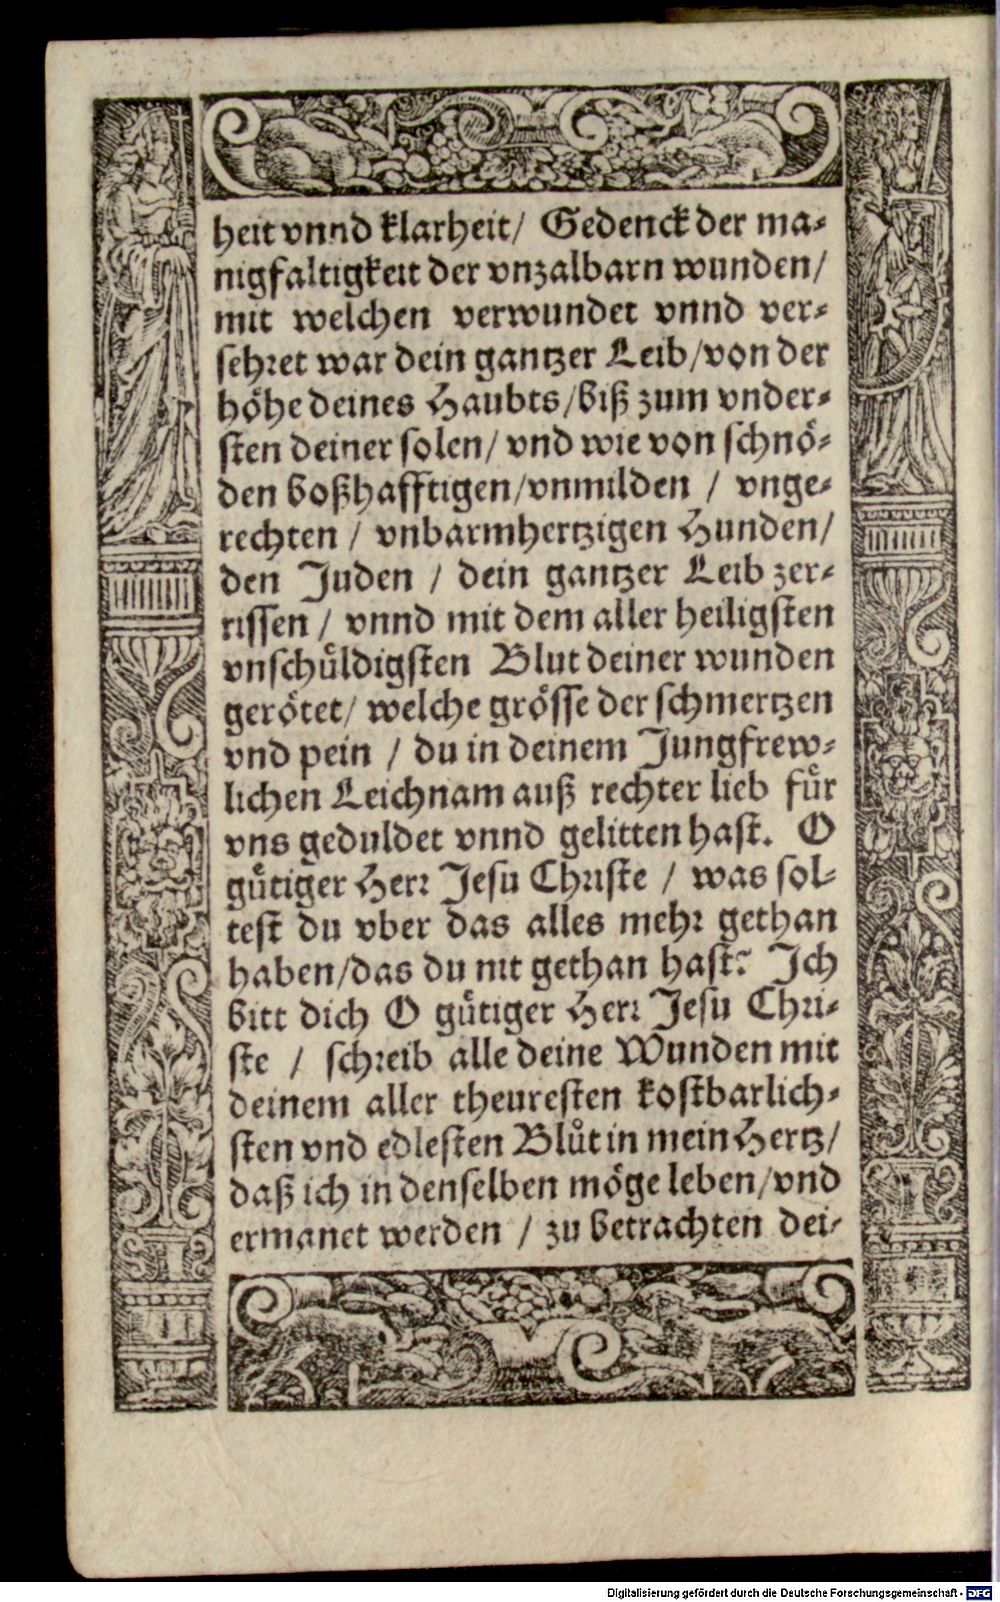 heit vnnd klarheit/ Gedenck der ma-
nigfaltigkeit der vnzalbarn wunden/
mit welchen verwundet vnnd ver-
sehret war dein gantzer Leib/von der
höhe deines Haubts/biß zum vnder-
sten deiner solen/ vnd wie von schnö-
den boßhafftigen/vnmilden / vnge-
rechten / vnbarmhertzigen Hunden/
den Juden / dein gantzer Leib zer-
rissen / vnnd mit dem aller heiligsten
vnschuͤldigsten Blut deiner wunden
gerötet/ welche grösse der schmertzen
vnd pein / du in deinem Jungfrew-
lichen Leichnam auß rechter lieb fuͤr
vns geduldet vnnd gelitten hast. O
guͤtiger Herr Jesu Christe / was sol-
test du vber das alles mehr gethan
haben/das du nit gethan hast? Ich
bitt dich O guͤtiger Herr Jesu Chri-
ste / schreib alle deine Wunden mit
deinem aller theuresten kostbarlich-
sten vnd edlesten Blůt in mein Hertz/
daß ich in denselben möge leben/vnd
ermanet werden / zu betrachten dei-
Digitalisierung gefördert durch die Deutsche Forschungsgemeinschaft - DFG